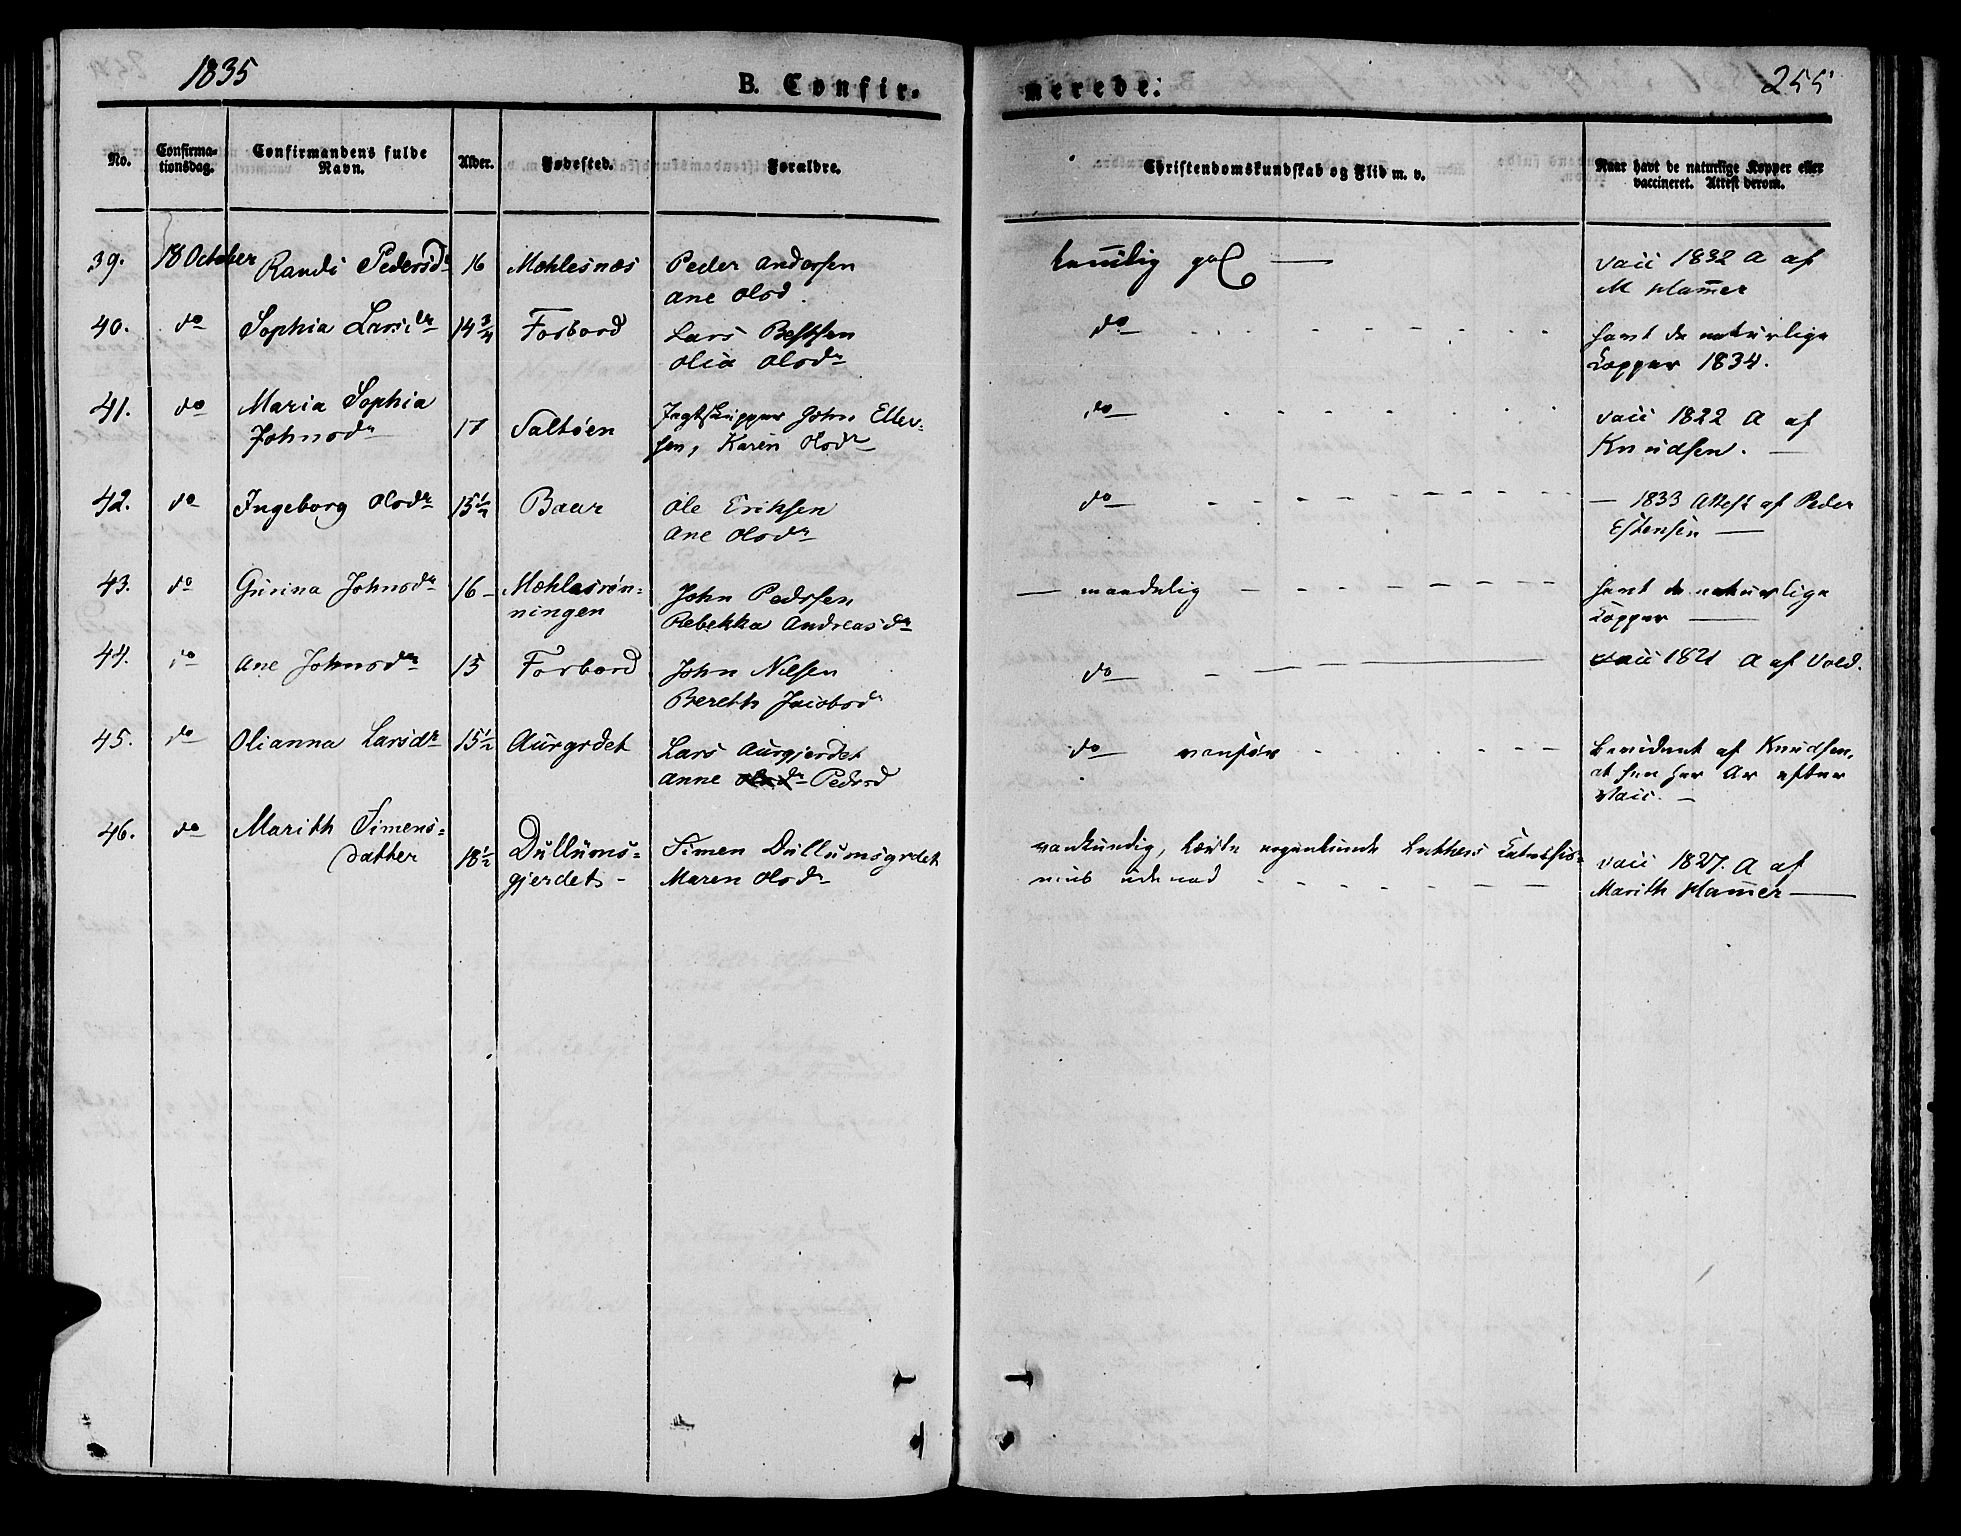 1835
B. Confir-
merede.
255
No.
Confirma-
tionsdag.
Confirmandens fulde
Navn.
Alder.
Fødested.
Forældre.
Christendomskundskab og Flid m. v.
Naar havt de naturlige Kopper eller
vaccineret. Attest derom.
39. 18 October Randi Pedersdr 16 Mæhlesnæs Peder Andersen
Ane Olsd.
temmelig god
vacc 1832 A af
M Hammer
40. do Sophia Larsdr 14 3/4 Forbord Lars
Olia Olsdr
do
havt de naturlige
Kopper 1834.
41. do Maria Sophia
Johnsdr 17 Saltøen Jagtskipper John Eller-
sen, Karen Olsdr
do
vacc 1822 A af
Knudsen.
42. do Ingeborg Olsdr 15 1/2 Baar Ole Eriksen
Ane Olsdr
do
— 1833 Attest af Peder
Estensen
43. do Gurina Johnsdr 16 Mæhlesrøn-
ningen John Pedrsen
Rebekka Andreasdr
— maadelig
havt de naturlige
Kopper
44. do Ane Johnsdr 15 Forbord John Nilsen
Bereth Jacobsdr
do
vacc 1821 A af Vold.
45. do Olianna Larsdr 15 1/2 Aurgrdet Lars Aurgjerdet
Anne Olsdr Pedrsd
do vanfør
af Knudsen,
at hun har Ar efter
Vacc.
46. do Marith Simens-
datter 18 1/2 Dullums-
gjerdet Simen Dullumsgrdet
Maren Olsdr
vankundig, lærte Luthers Katechis-
mus udenad
vacc 1827. A af
Marith Hammer